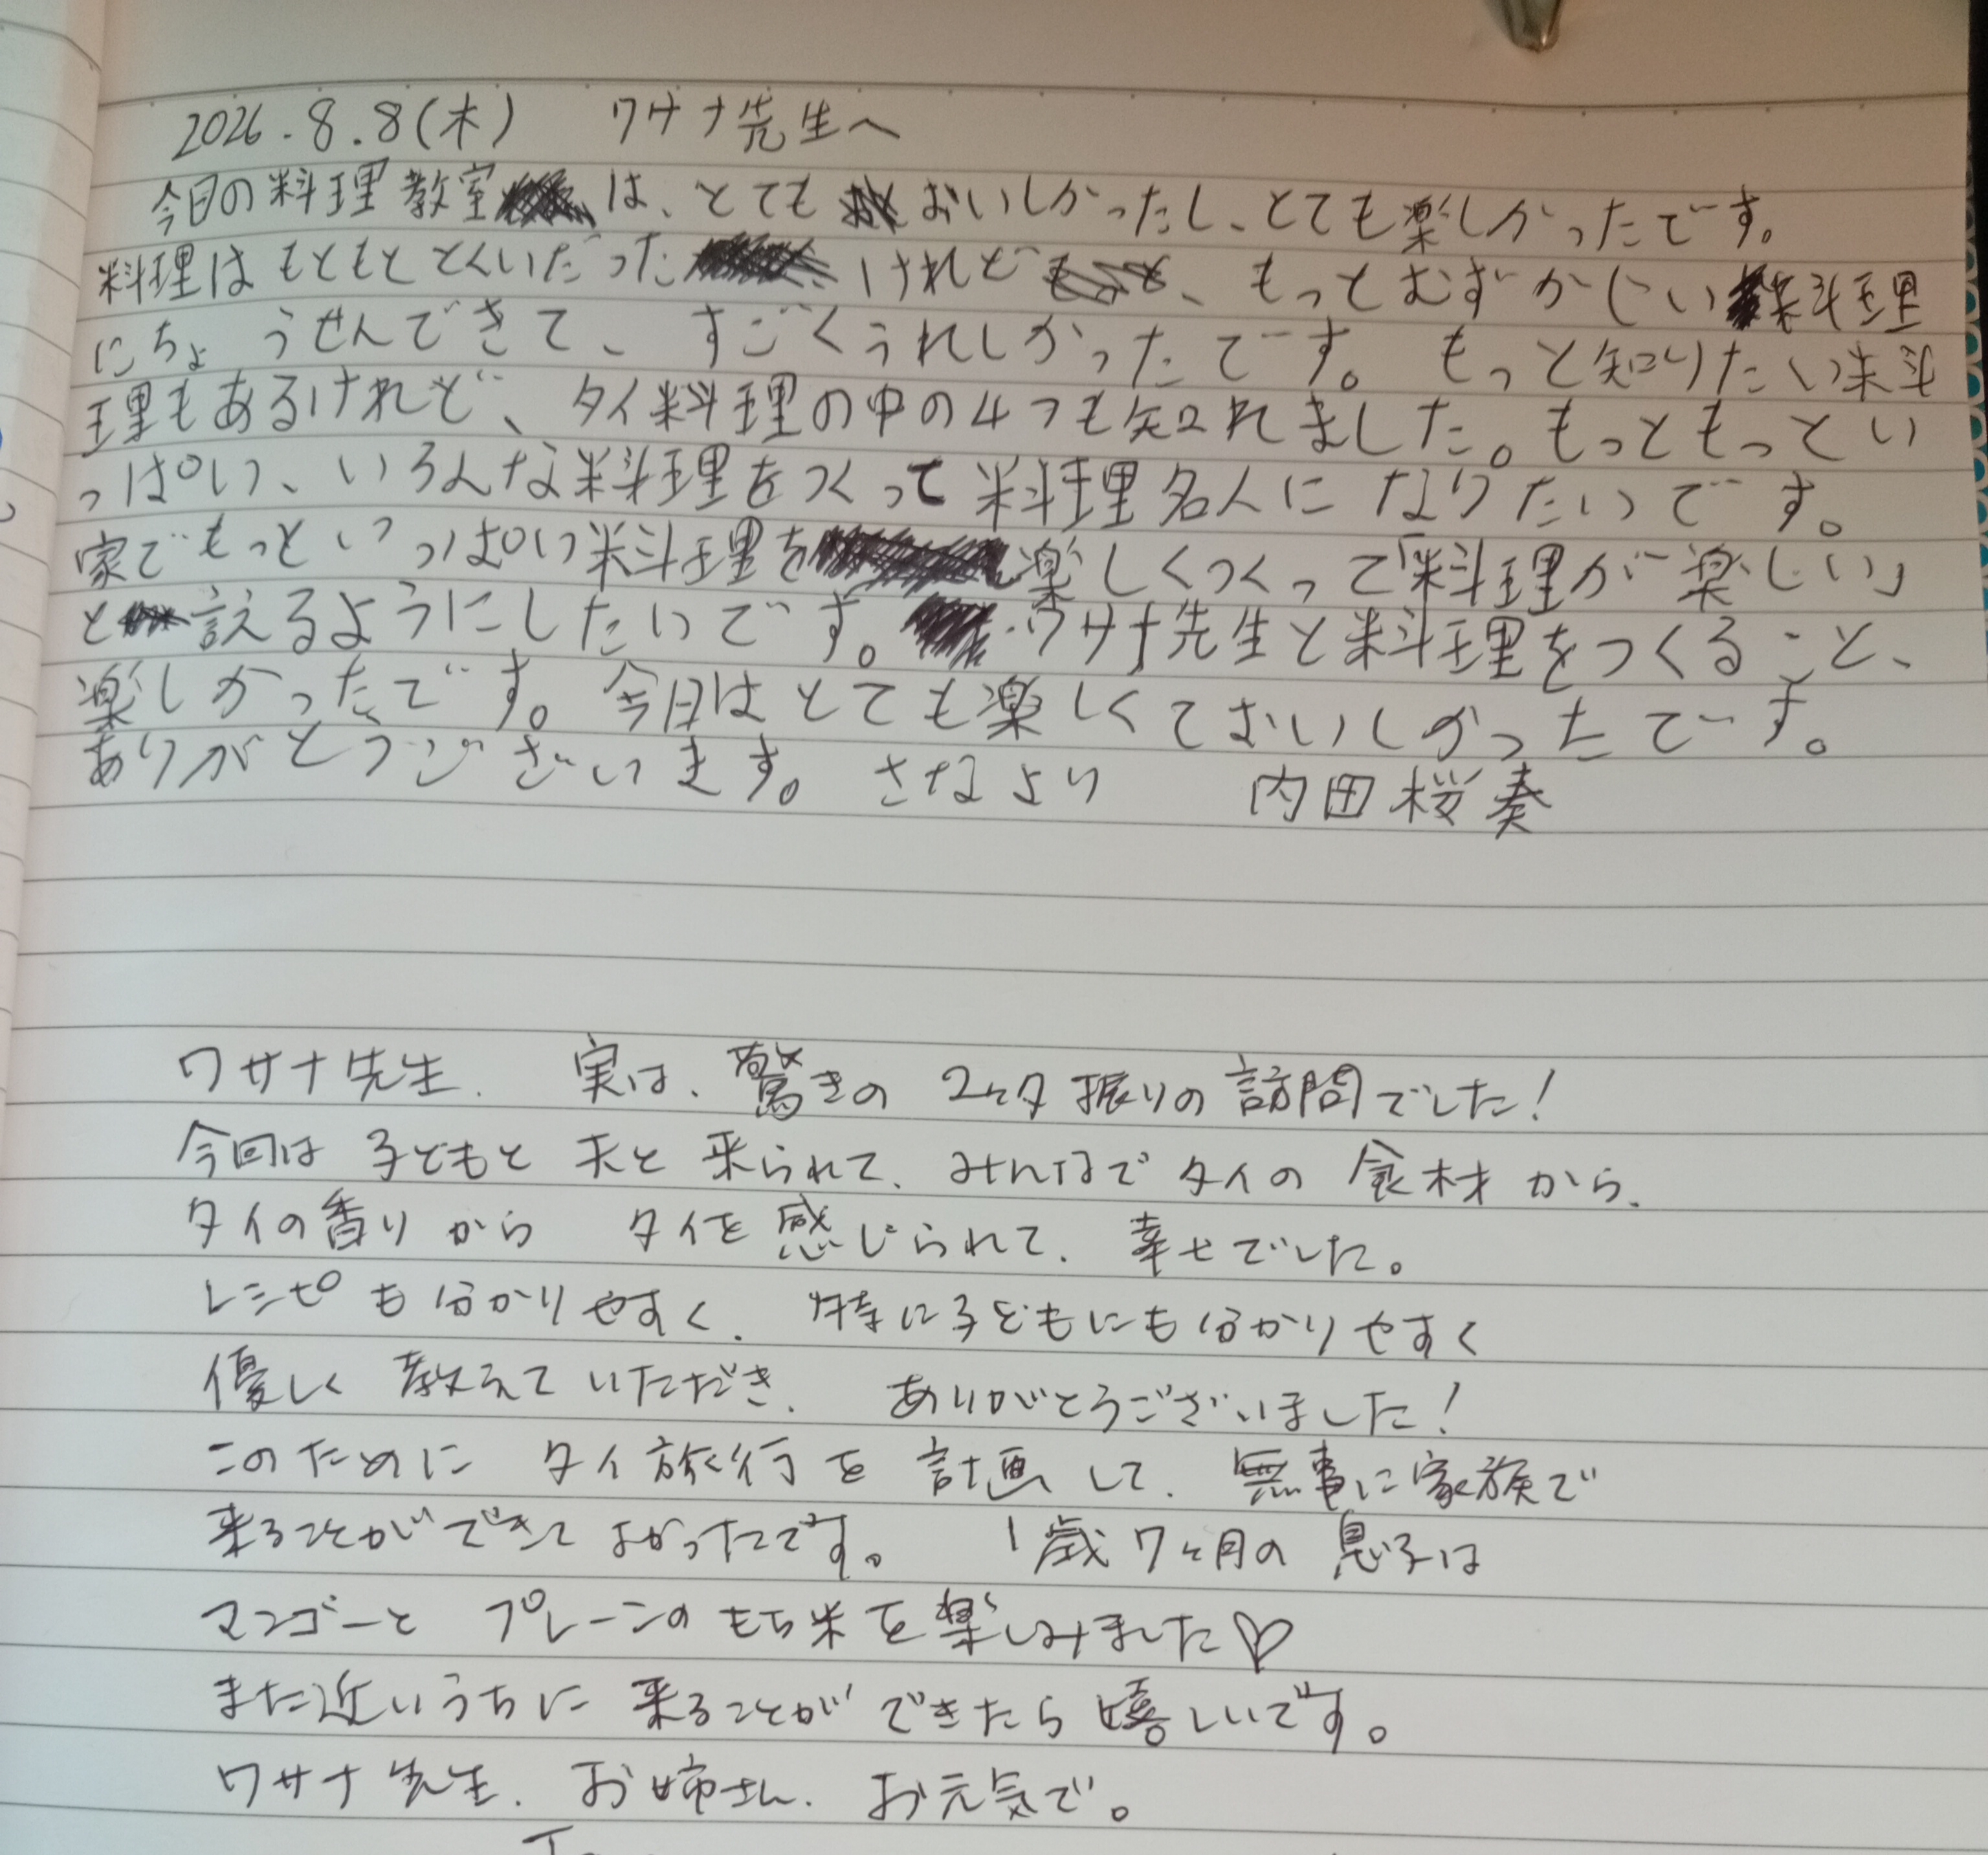 2026.8.8(木) ワサナ先生へ
今日の料理教室は、とてもおいしかったし、とても楽しかったです。
料理はもともととくいだったけれど、もっとむずかしい料理
にちょうせんできて、すごくうれしかったです。もっと知りたい料
理もあるけれど、タイ料理の中の4つも知れました。もっともっとい
っぱい、いろんな料理をつくって料理名人になりたいです。
家でもっといっぱい料理を楽しくつくって「料理が楽しい」
と言えるようにしたいです。ワサナ先生と料理をつくること、
楽しかったです。今日はとても楽しくておいしかったです。
ありがとうございます。さなより 内田桜奏
ワサナ先生、実は、驚きの2ヶ月振りの訪問でした!
今回は子どもと夫と来られて、みんなでタイの食材から、
タイの香りからタイを感じられて、幸せでした。
レシピも分かりやすく、特に子どもにも分かりやすく
優しく教えていただき、ありがとうございました!
このためにタイ旅行を計画して、無事に家族で
来ることができてよかったです。1歳7ヶ月の息子は
マンゴーとプレーンのもち米を楽しみました♡
また近いうちに来ることができたら嬉しいです。
ワサナ先生、お姉さん、お元気で。